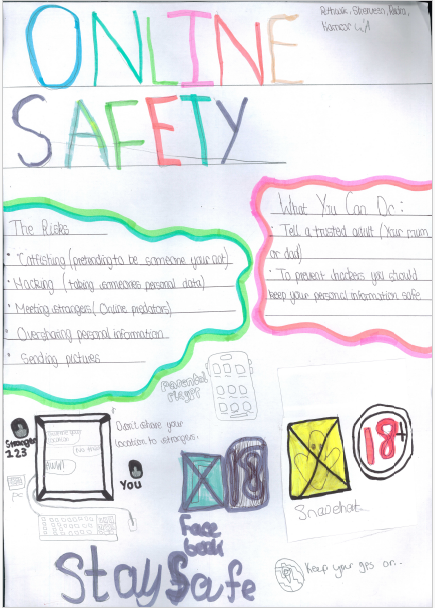 ONLINE
SAFETY
The Risks
• Catfishing (pretending to be someone your not)
• Hacking (taking someones personal data)
• Meeting strangers (Online predators)
• Oversharing personal information
• Sending pictures
What You Can Do:
• Tell a trusted adult (Your mum
or dad)
• To prevent hackers you should
keep your personal information safe
Parental
Stranger
123
YOU
PC
Don't share your
location to strangers.
18
Face
book
18+
Snapchat
Stay Safe
Keep your gps on..